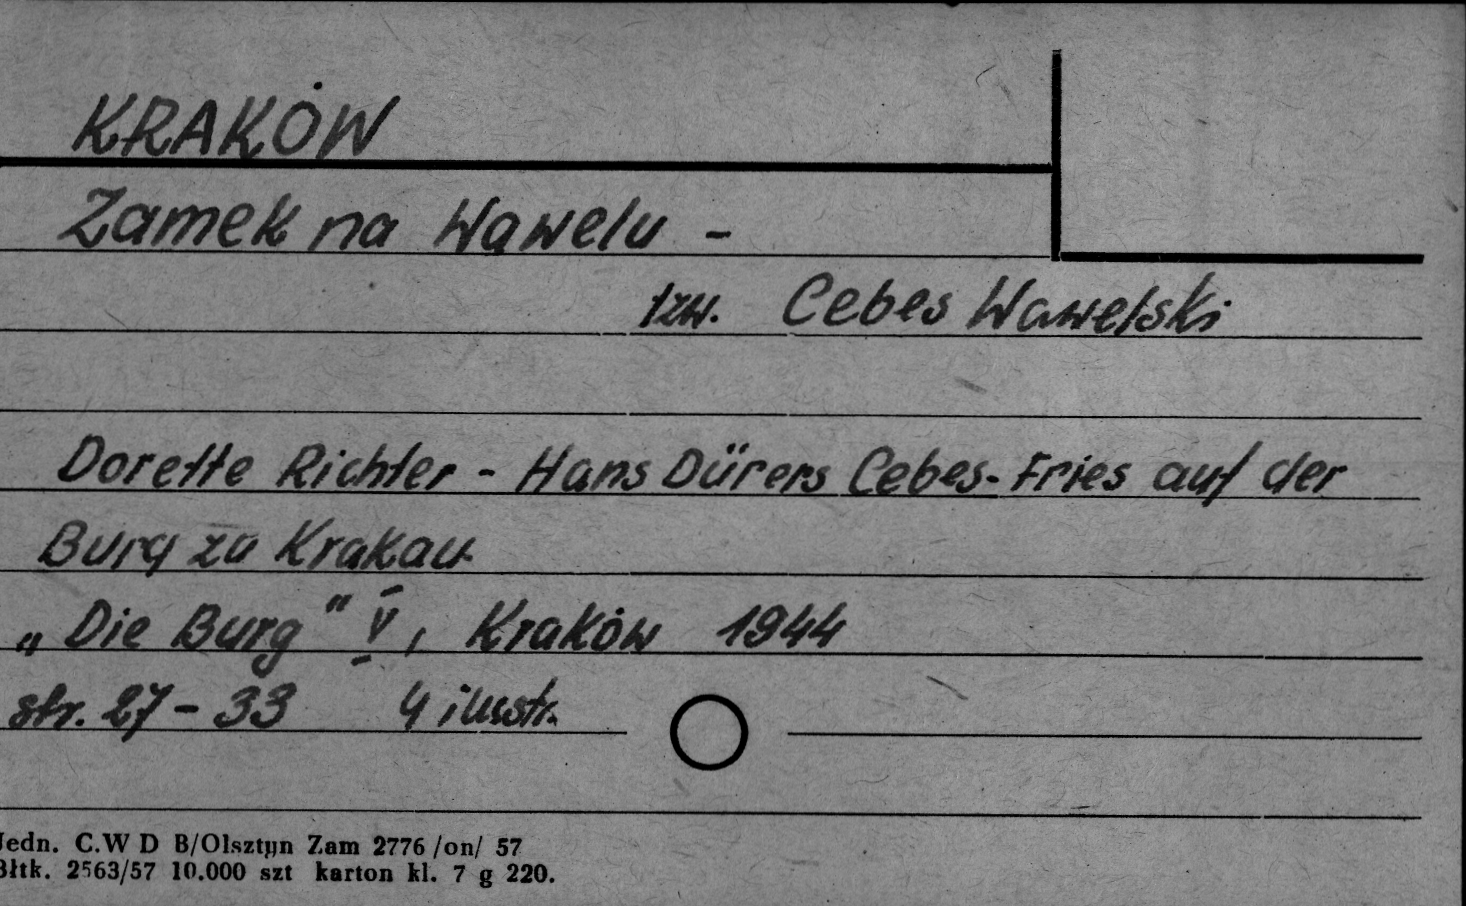 KRAKÓW
Zamek na Wawelu -
tzw. Cebes Wawelski
Dorette Richter - Hans Dürers Cebes-Fries auf der
Burg zu Krakau
„Die Burg" V, Kraków 1944
str. 27-33 4 ilustr.
Jedn. C.W D B/Olsztyn Zam 2776 /on/ 57
Błtk. 2563/57 10.000 szt karton kl. 7 g 220.